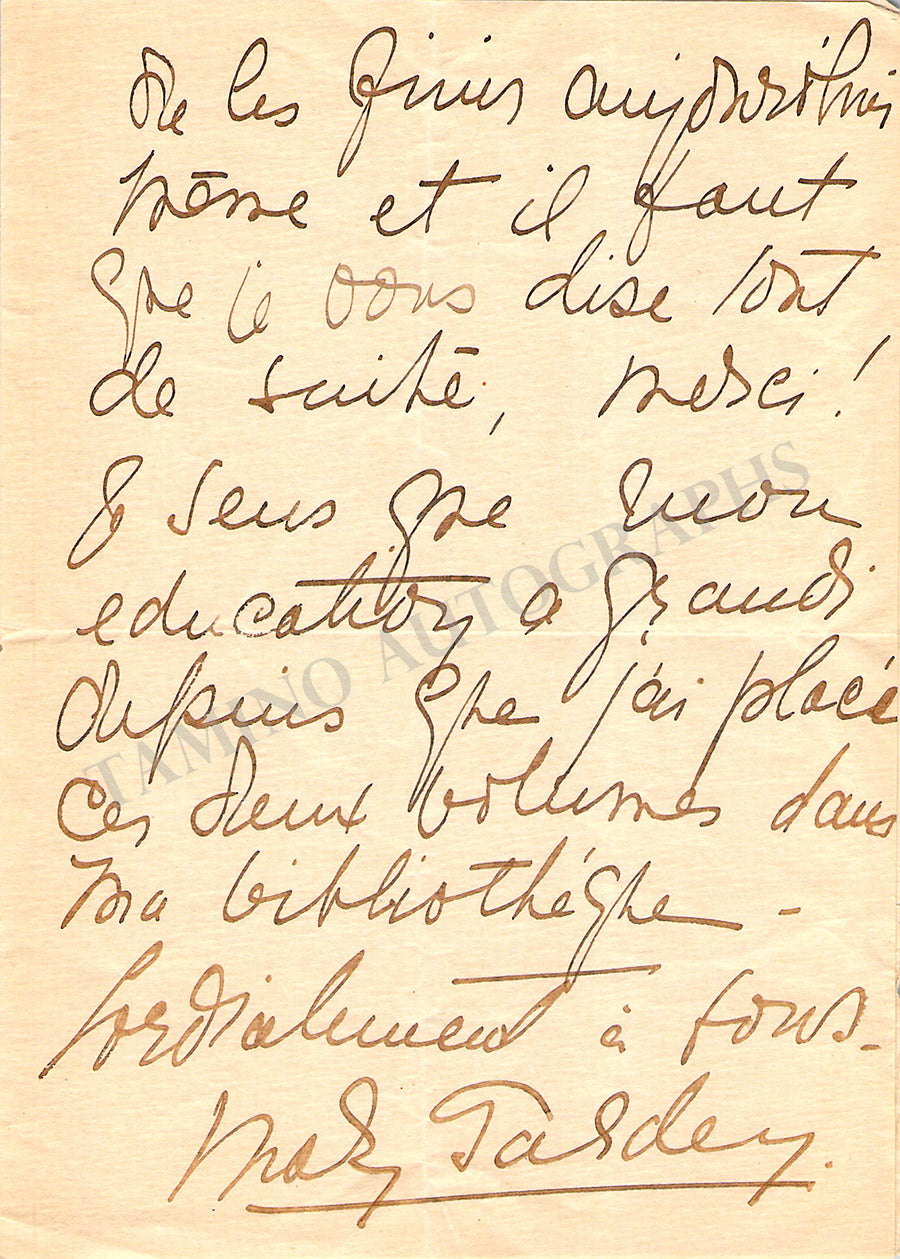 de les finir aujourd'hui
même et il faut
que je vous dise tout
de suite, merci!
Je sens que mon
education a grandi
depuis que j'ai placé
ces deux volumes dans
ma bibliothéque -
Cordialement à tous -
Mary Garden.
TAMINO AUTOGRAPHS